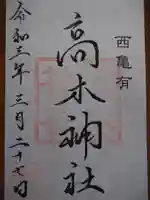 西亀有
高木神社
令和三年三月二十七日